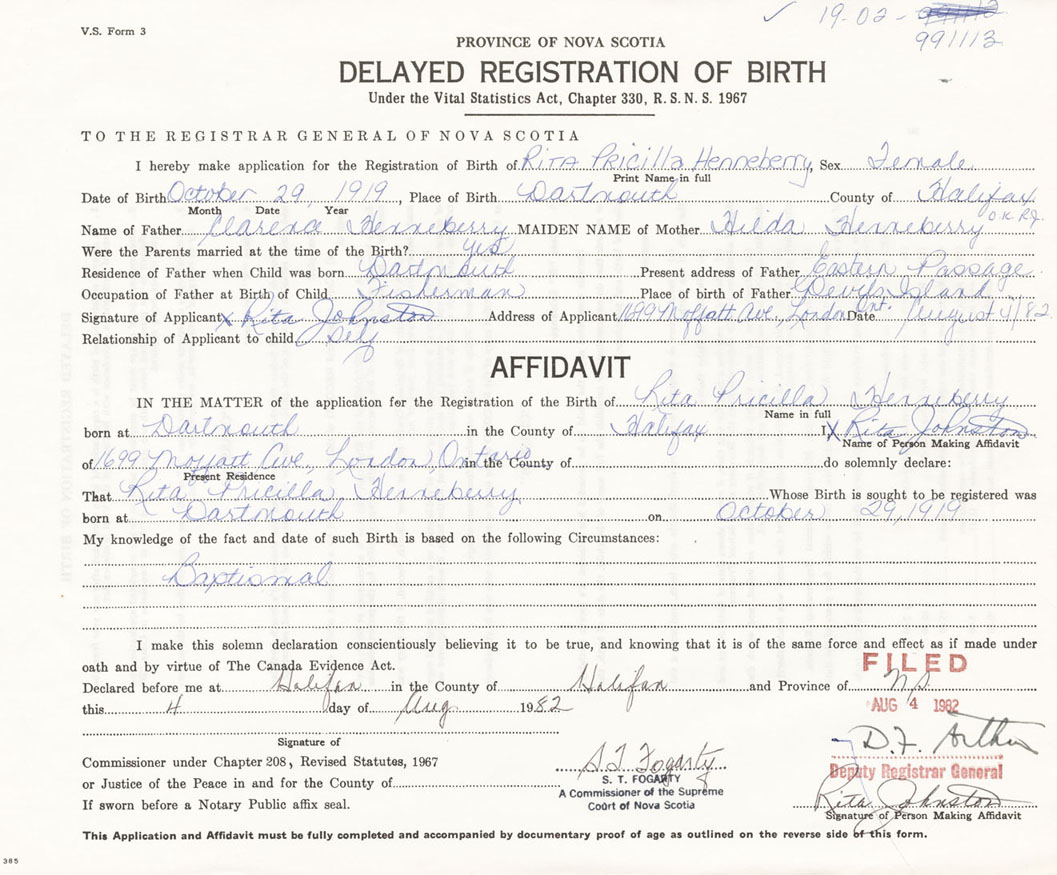 V.S. Form 3
✓ 19-02-
991113
PROVINCE OF NOVA SCOTIA
DELAYED REGISTRATION OF BIRTH
Under the Vital Statistics Act, Chapter 330, R. S. N. S. 1967
TO THE REGISTRAR GENERAL OF NOVA SCOTIA
I hereby make application for the Registration of Birth of Rita Pricilla Henneberry, Sex Female
Print Name in full
Date of Birth October 29, 1919, Place of Birth Dartmouth County of Halifax
Month Date Year
O.K.
Name of Father Clarence Henneberry MAIDEN NAME of Mother Hilda Henneberry
Were the Parents married at the time of the Birth? yes
Residence of Father when Child was born Dartmouth Present address of Father Eastern Passage
Occupation of Father at Birth of Child Fisherman Place of birth of Father Devil's Island
Signature of Applicant X Rita Johnston Address of Applicant 1699 Moffatt Ave., London Ont. Date August 4/82
Relationship of Applicant to child Self
AFFIDAVIT
IN THE MATTER of the application for the Registration of the Birth of Rita Pricilla Henneberry
Name in full
born at Dartmouth in the County of Halifax I X Rita Johnston
Name of Person Making Affidavit
of 1699 Moffatt Ave., London, Ontario in the County of do solemnly declare:
Present Residence
That Rita Pricilla Henneberry Whose Birth is sought to be registered was
born at Dartmouth on October 29, 1919
My knowledge of the fact and date of such Birth is based on the following Circumstances:
Baptismal
I make this solemn declaration conscientiously believing it to be true, and knowing that it is of the same force and effect as if made under
oath and by virtue of The Canada Evidence Act.
FILED
Declared before me at Halifax in the County of Halifax and Province of N.S.
this 4 day of Aug 1982
AUG 4 1982
Signature of
D.F. Arthur
Commissioner under Chapter 208, Revised Statutes, 1967
S T Fogarty
Deputy Registrar General
or Justice of the Peace in and for the County of
S. T. FOGARTY
A Commissioner of the Supreme
Court of Nova Scotia
Rita Johnston
If sworn before a Notary Public affix seal.
Signature of Person Making Affidavit
This Application and Affidavit must be fully completed and accompanied by documentary proof of age as outlined on the reverse side of this form.
385